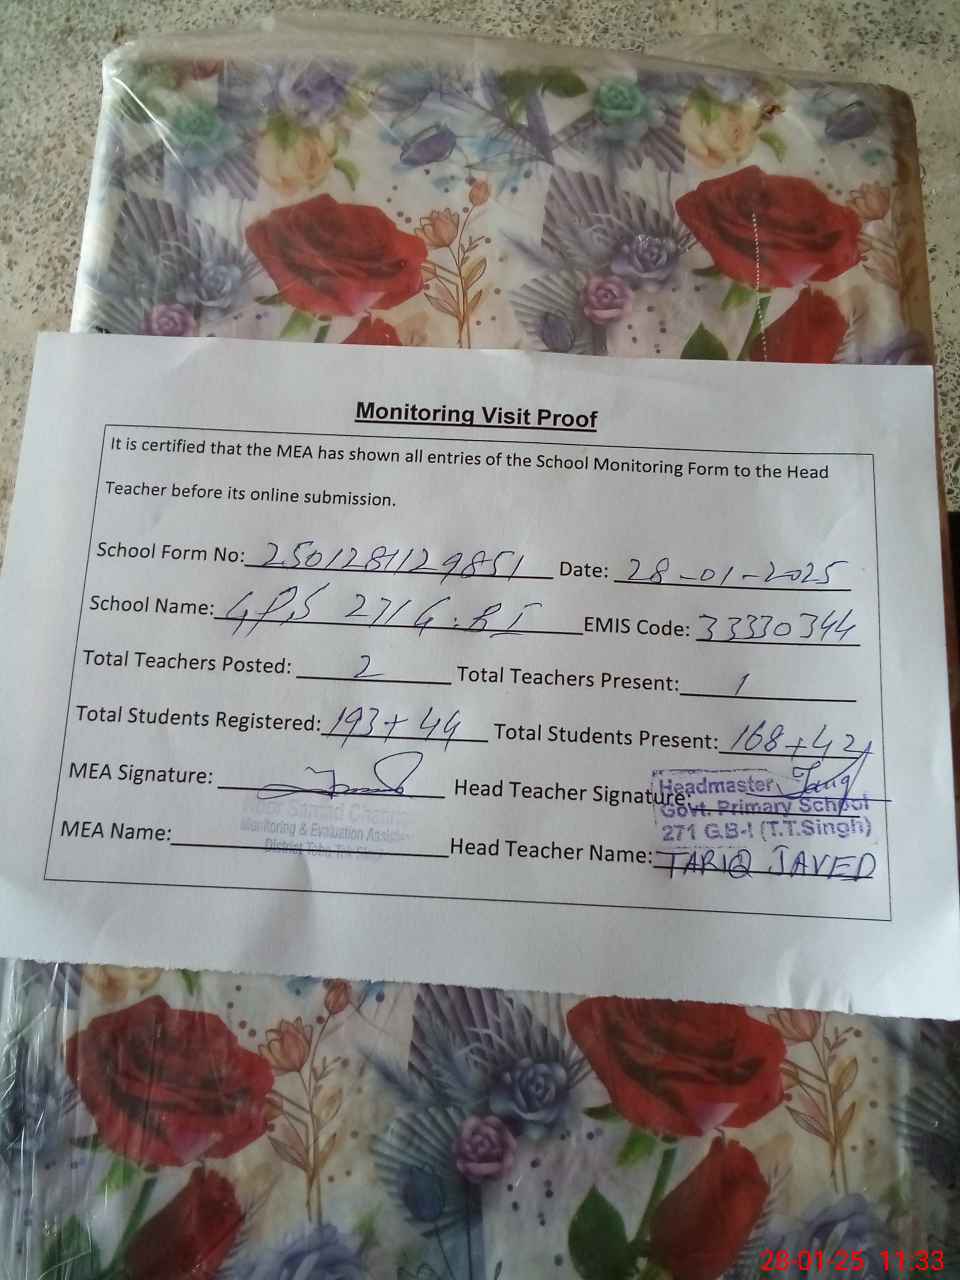 Monitoring Visit Proof
It is certified that the MEA has shown all entries of the School Monitoring Form to the Head
Teacher before its online submission.
School Form No: 2501281129851 Date: 28-01-2025
School Name: GPS 271 G.B I EMIS Code: 33330344
Total Teachers Posted: 2 Total Teachers Present: 1
Total Students Registered: 193+44 Total Students Present: 168+42
MEA Signature: Head Teacher Signature:
Headmaster
Govt. Primary School
271 G.B-I (T.T.Singh)
Monitoring & Evaluation Assistant
District Toba Tek Singh
MEA Name: Head Teacher Name: TARIQ JAVED
28-01-25 11:33